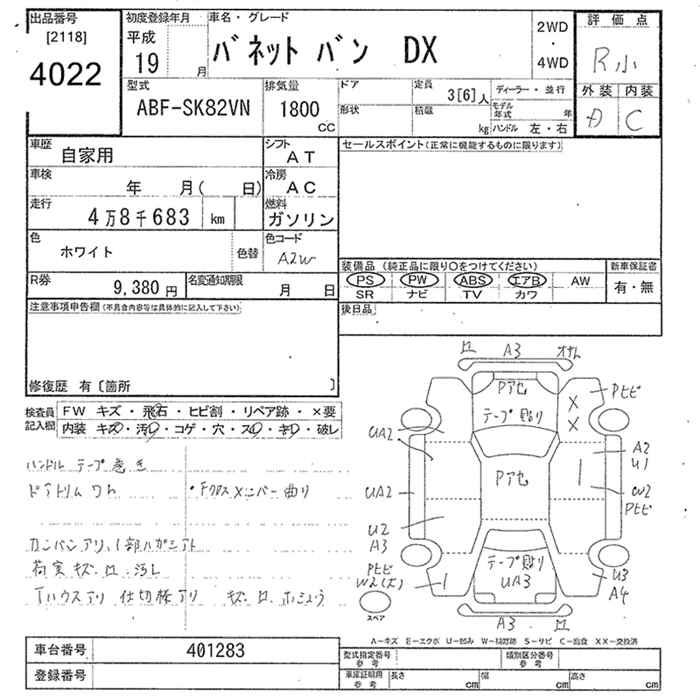 出品番号
[2118]
4022
初度登録年月
平成
19 月
車名・グレード
バネット バン DX
2WD
・
4WD
評価点
R 小
外装 内装
D C
型式
ABF-SK82VN
排気量
1800
CC
ドア
形状
定員
3[6]人
積載
kg
ディーラー・並行
モデル年式 年
ハンドル 左・右
車歴
自家用
シフト
AT
車検
年 月( 日)
冷房
AC
走行
4万8千683 km
燃料
ガソリン
色
ホワイト
色替
色コード
A2W
R券
9,380円
名変通知期限
月 日
セールスポイント(正常に機能するものに限ります)
装備品(純正品に限り○をつけてください)
新車保証書
PS PW ABS エアB AW
SR ナビ TV カワ
有・無
後日品
注意事項申告欄(不具合内容等は具体的に記入して下さい)
修復歴 有〔箇所 〕
検査員
記入欄
FW キズ・飛石・ヒビ割・リペア跡・×要
内装 キズ・汚レ・コゲ・穴・スレ・キレ・破レ
ハンドル テープ巻き
ドアトリムワレ
・Fクロスメンバー曲り
カンバンアリ、1部ハガシアト
荷室 キズ.ロ.汚レ
Tハウスアリ 仕切板アリ
ロ A3 オサレ
Pアセ
テープ貼り
X
X
Pヒビ
UA2
A2
U1
Pアセ
UA2
W2
Pヒビ
U2
A3
テープ貼り
UA3
Pヒビ
U3
A4
A3 ロ
スペア
A-キズ E-エクボ U-凹み W-補修跡 S-サビ C-腐食 XX-交換済
車台番号
401283
登録番号
型式指定番号
参考
類別区分番号
参考
車庫証明用
参考
長さ cm
幅 cm
高さ cm